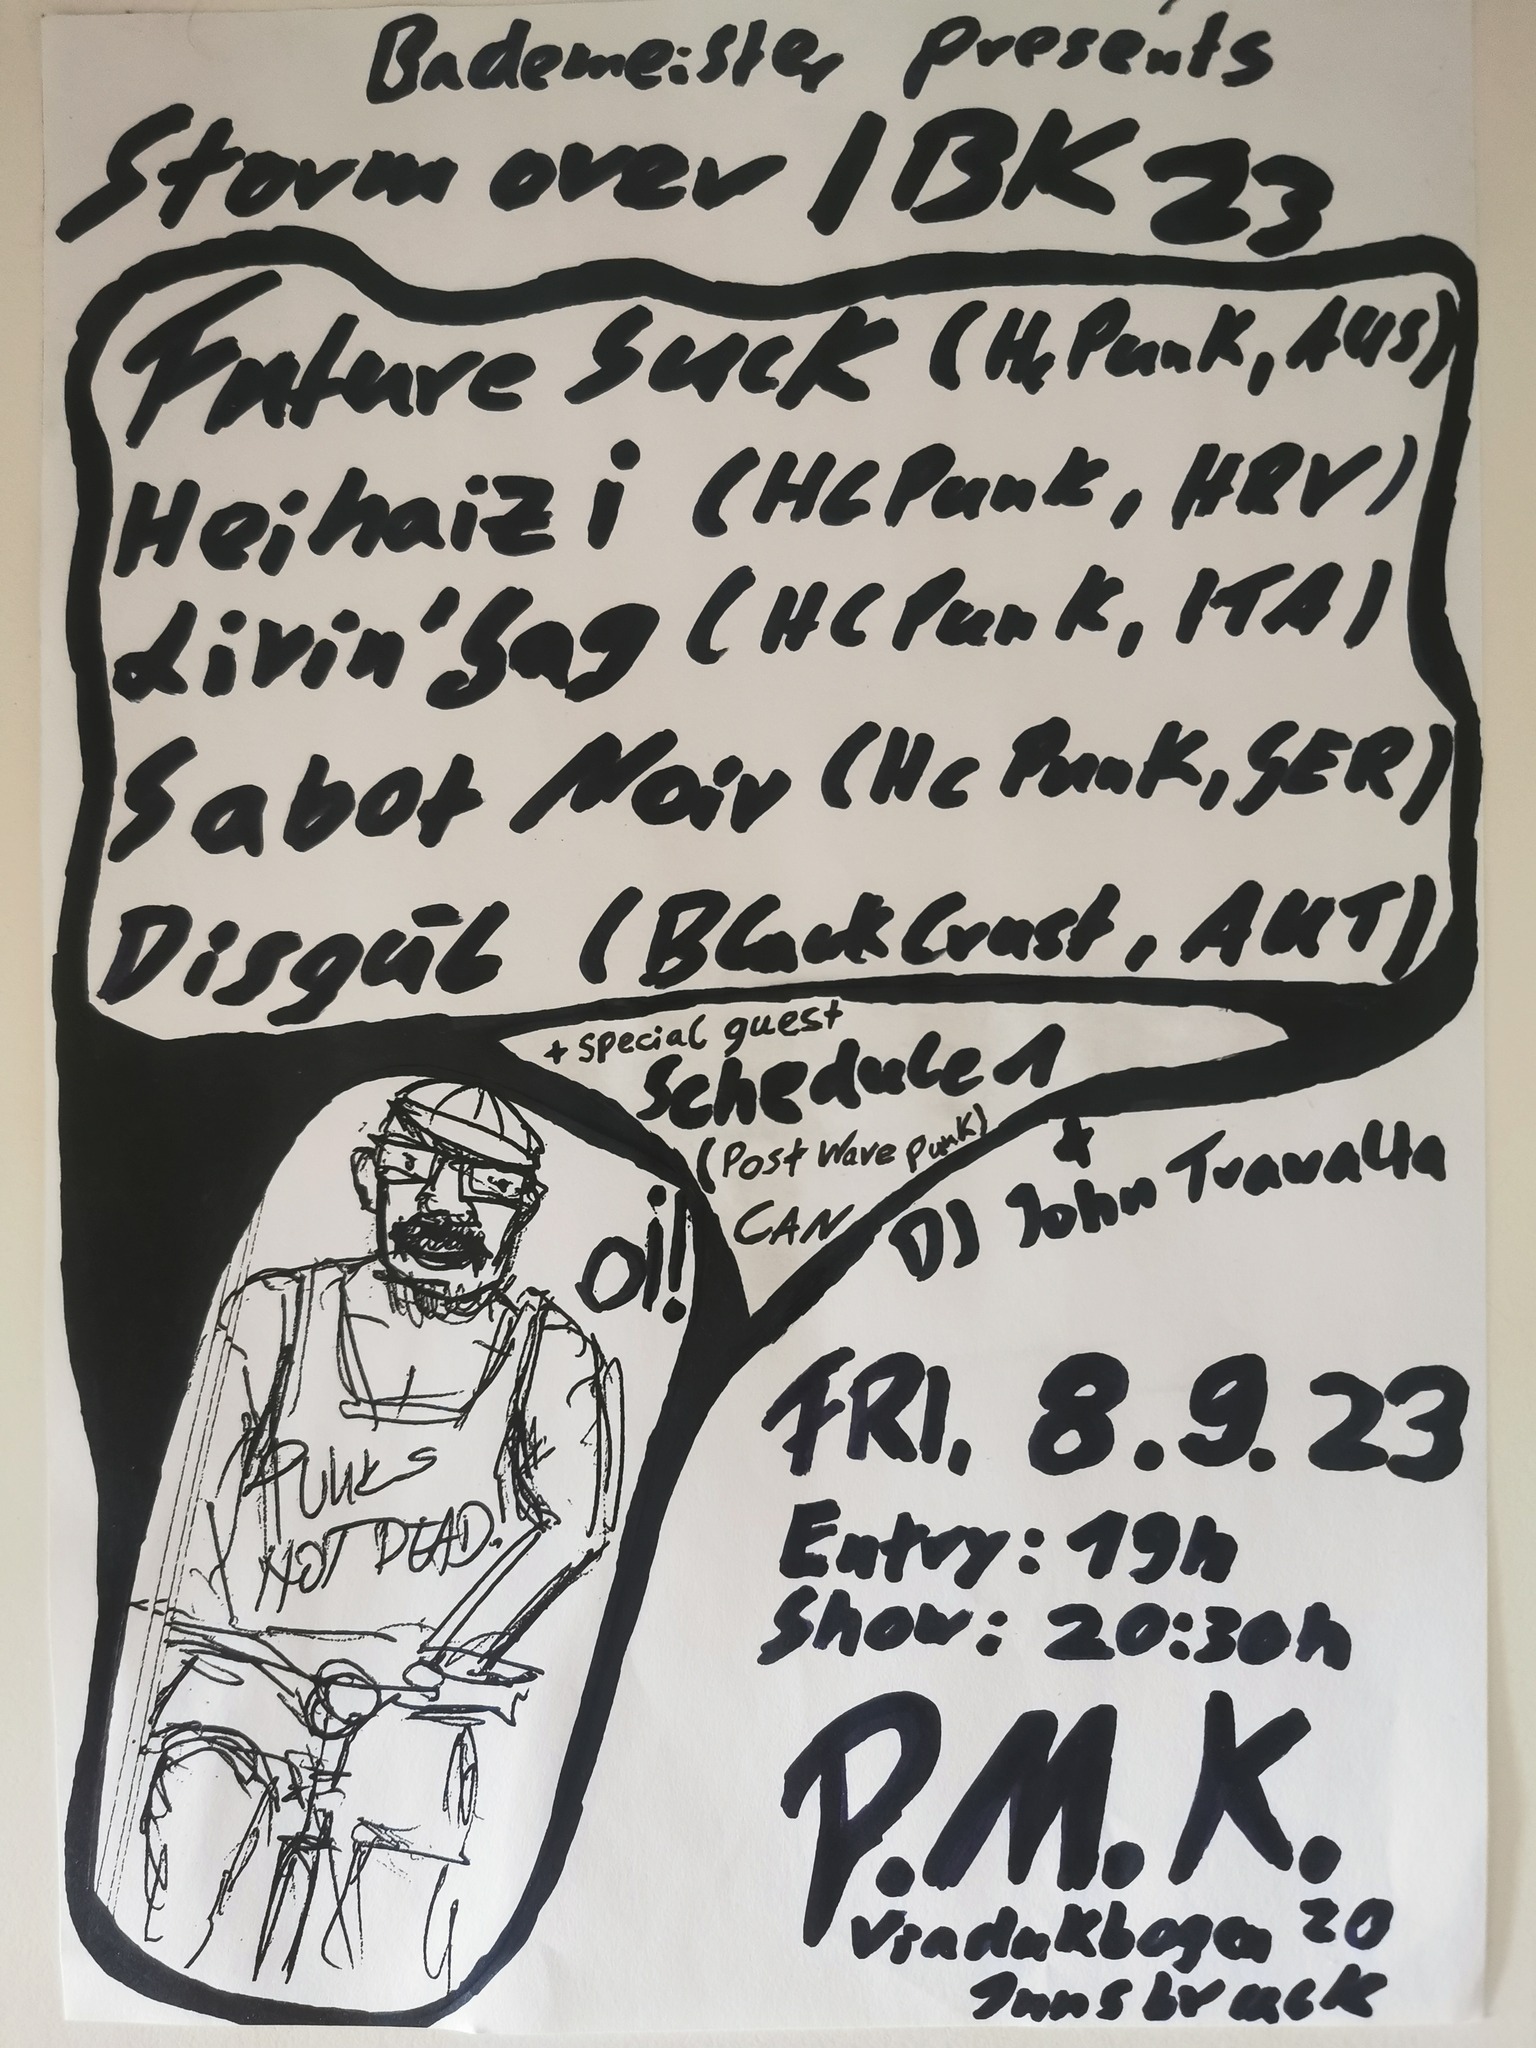 Bademeister presents
Storm over IBK 23
Future Suck (Hc Punk, AUS)
Heihaizi (HC Punk, HRV)
Livin' Sag (HC Punk, ITA)
Sabot Noir (Hc Punk, GER)
Disgūl (Black Crust, AUT)
+ special guest
Schedule 1
(Post Wave Punk)
CAN
+
DJ John Travalta
Oi!
PUNKS
NOT DEAD.
FRI, 8.9.23
Entry: 19h
Show: 20:30h
P.M.K.
Viaduktbogen 20
Innsbruck